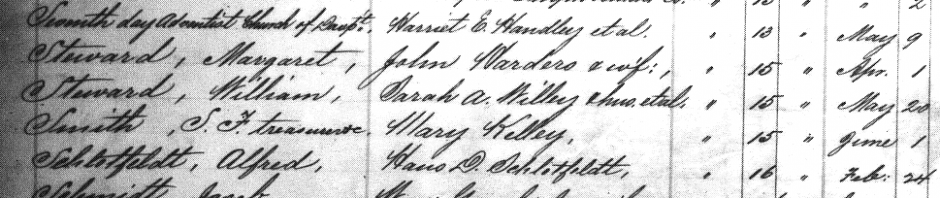 " 13 " " 2
Seventh day Adventist Church of Davpt. Harriet E. Handley et al. " 13 " May 9
Steward, Margaret, John Warders & wf:, " 15 " Apr. 1
Steward, William, Sarah A. Willey & hus. et al. " 15 " May 20
Smith, S. F. treasurer &c. Mary Kelley, " 15 " June 1
Schlotfeldt, Alfred, Hans D. Schlotfeldt, " 16 " Feb: 24
Schmidt, Jacob